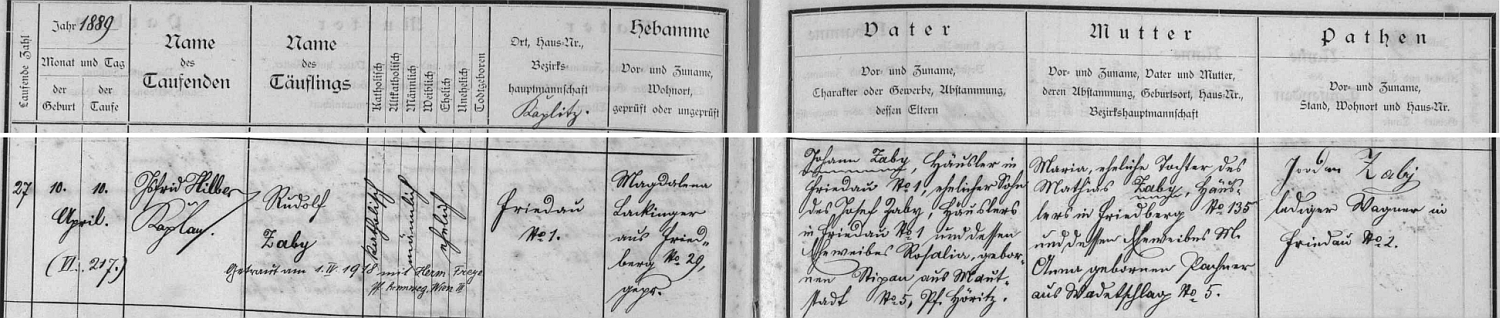 Laufende Zahl
Jahr 1889
Monat und Tag
der Geburt
der Taufe
Name
des
Taufenden
Name
des
Täuflings
Katholisch
Altkatholisch
Männlich
Weiblich
Ehelich
Unehelich
Todtgeboren
Ort, Haus-Nr.,
Bezirks-
hauptmannschaft
Kaplitz.
Hebamme
Vor- und Zuname,
Wohnort,
geprüft oder ungeprüft
Vater
Vor- und Zuname,
Charakter oder Gewerbe, Abstammung,
dessen Eltern
Mutter
Vor- und Zuname, Vater und Mutter,
deren Abstammung, Geburtsort, Haus-Nr.,
Bezirkshauptmannschaft
Pathen
Vor- und Zuname,
Stand, Wohnort und Haus-Nr.
27
10. 10.
April.
(VI. : 217.)
Isfrid Hilber
Kaplan.
Rudolf
Zaby
Getraut am 1. IV. 1918 mit Herm.
Wien III
katholisch
männlich
ehelich
Friedau
No 1.
Magdalena
Lackinger
aus Fried-
berg No 29,
gepr.
Johann Zaby, Häusler in
Friedau No 1, ehelicher Sohn
des Josef Zaby, Häuslers
in Friedau No 1 und dessen
Eheweibes Rosalia, gebor-
nen Stipan aus Maut-
stadt No 5, Pf. Höritz.
Maria, eheliche Tochter des
Mathias Zaby, Häus-
lers in Friedberg No 135
und dessen Eheweibes M.
Anna gebornen Pachner
aus Wadetschlag No 5.
Jordan Zabj
lediger Wagner in
Friedau No 2.